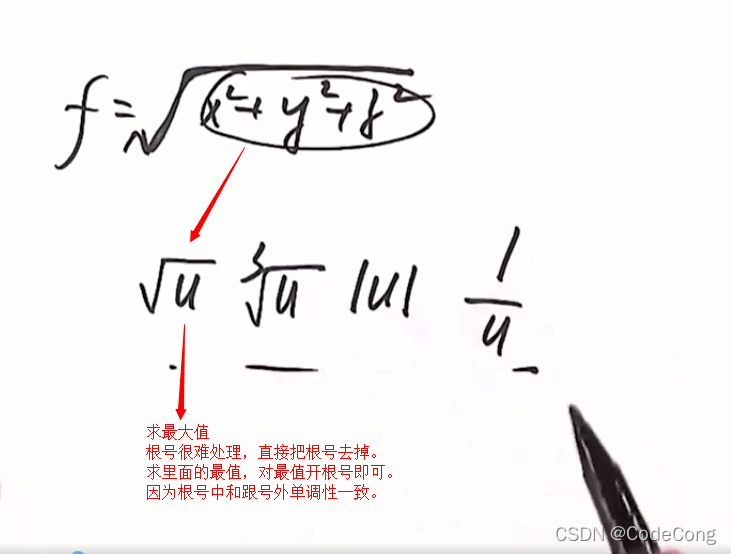 f=√(x²+y²+z²)
√u ∛u |u| 1/u
求最大值
根号很难处理，直接把根号去掉。
求里面的最值，对最值开根号即可。
因为根号中和跟号外单调性一致。
CSDN @CodeCong